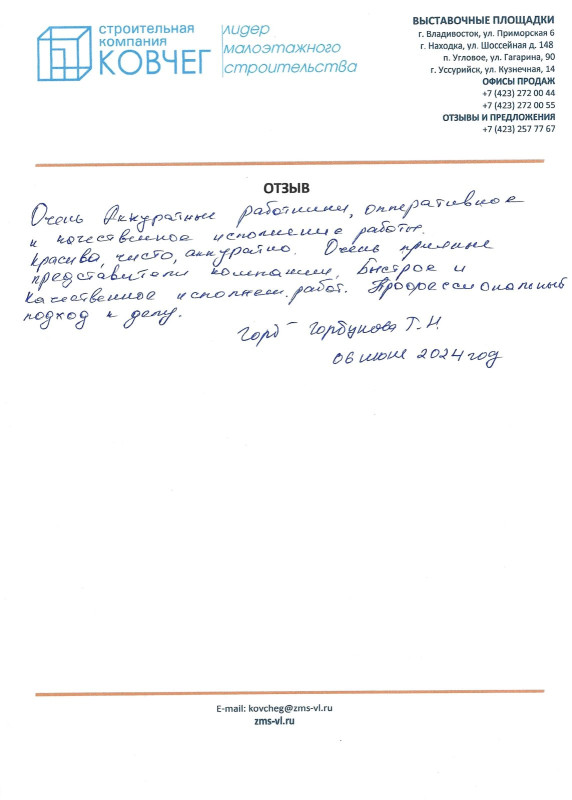 строительная
компания
КОВЧЕГ
лидер
малоэтажного
строительства
ВЫСТАВОЧНЫЕ ПЛОЩАДКИ
г. Владивосток, ул. Приморская 6
г. Находка, ул. Шоссейная д. 148
п. Угловое, ул. Гагарина, 90
г. Уссурийск, ул. Кузнечная, 14
ОФИСЫ ПРОДАЖ
+7 (423) 272 00 44
+7 (423) 272 00 55
ОТЗЫВЫ И ПРЕДЛОЖЕНИЯ
+7 (423) 257 77 67
ОТЗЫВ
Очень Аккуратные работники, опперативное
и качественное исполнение работы.
Красиво, чисто, аккуратно. Очень приятные
представители компании, Быстрое и
Качественное исполнен. работ. Профессиональный
подход к делу.
Горб Горбунова Т. Н.
06 июня 2024 год
E-mail: kovcheg@zms-vl.ru
zms-vl.ru